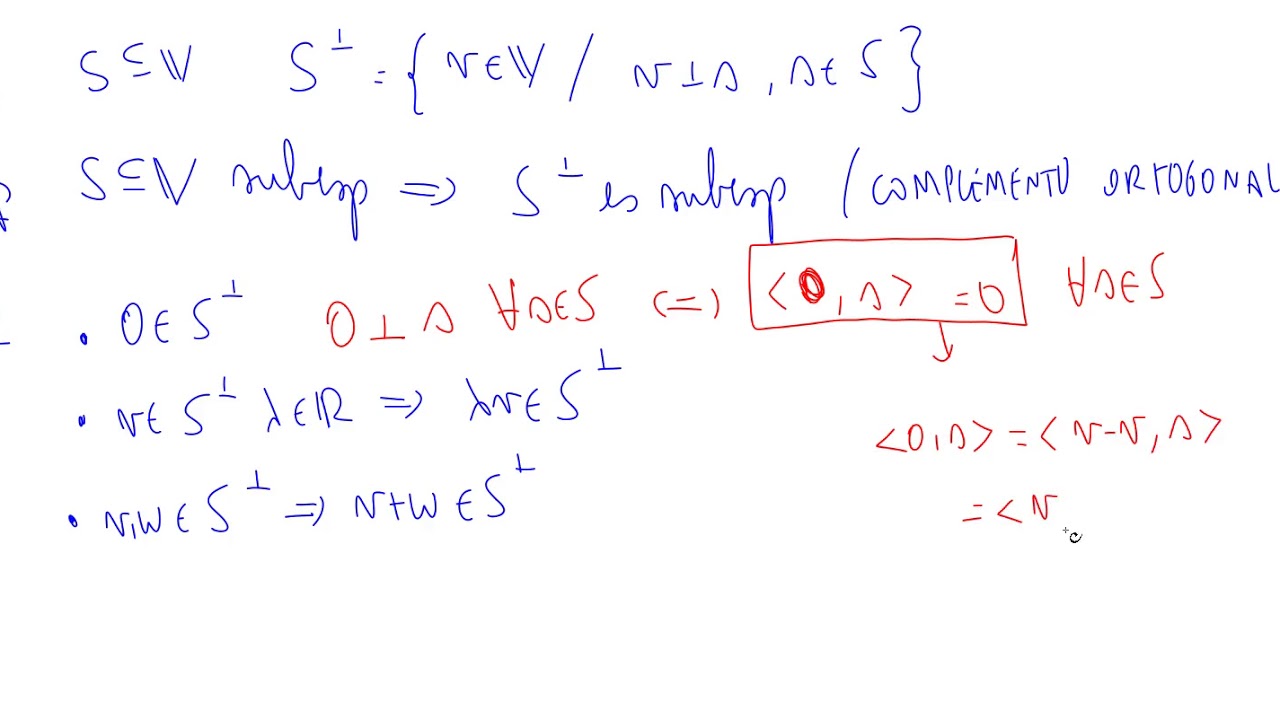 S ⊆ V S⊥ = { v ∈ V / v ⊥ s , s ∈ S }
S ⊆ V subesp ⇒ S⊥ es subesp (COMPLEMENTO ORTOGONAL
• 0 ∈ S⊥ 0 ⊥ s ∀ s ∈ S (=) < 0 , s > = 0 ∀ s ∈ S
• v ∈ S⊥ λ ∈ ℝ ⇒ λv ∈ S⊥
<0, s> = < v - v, s >
• v, w ∈ S⊥ ⇒ v + w ∈ S⊥
= < v